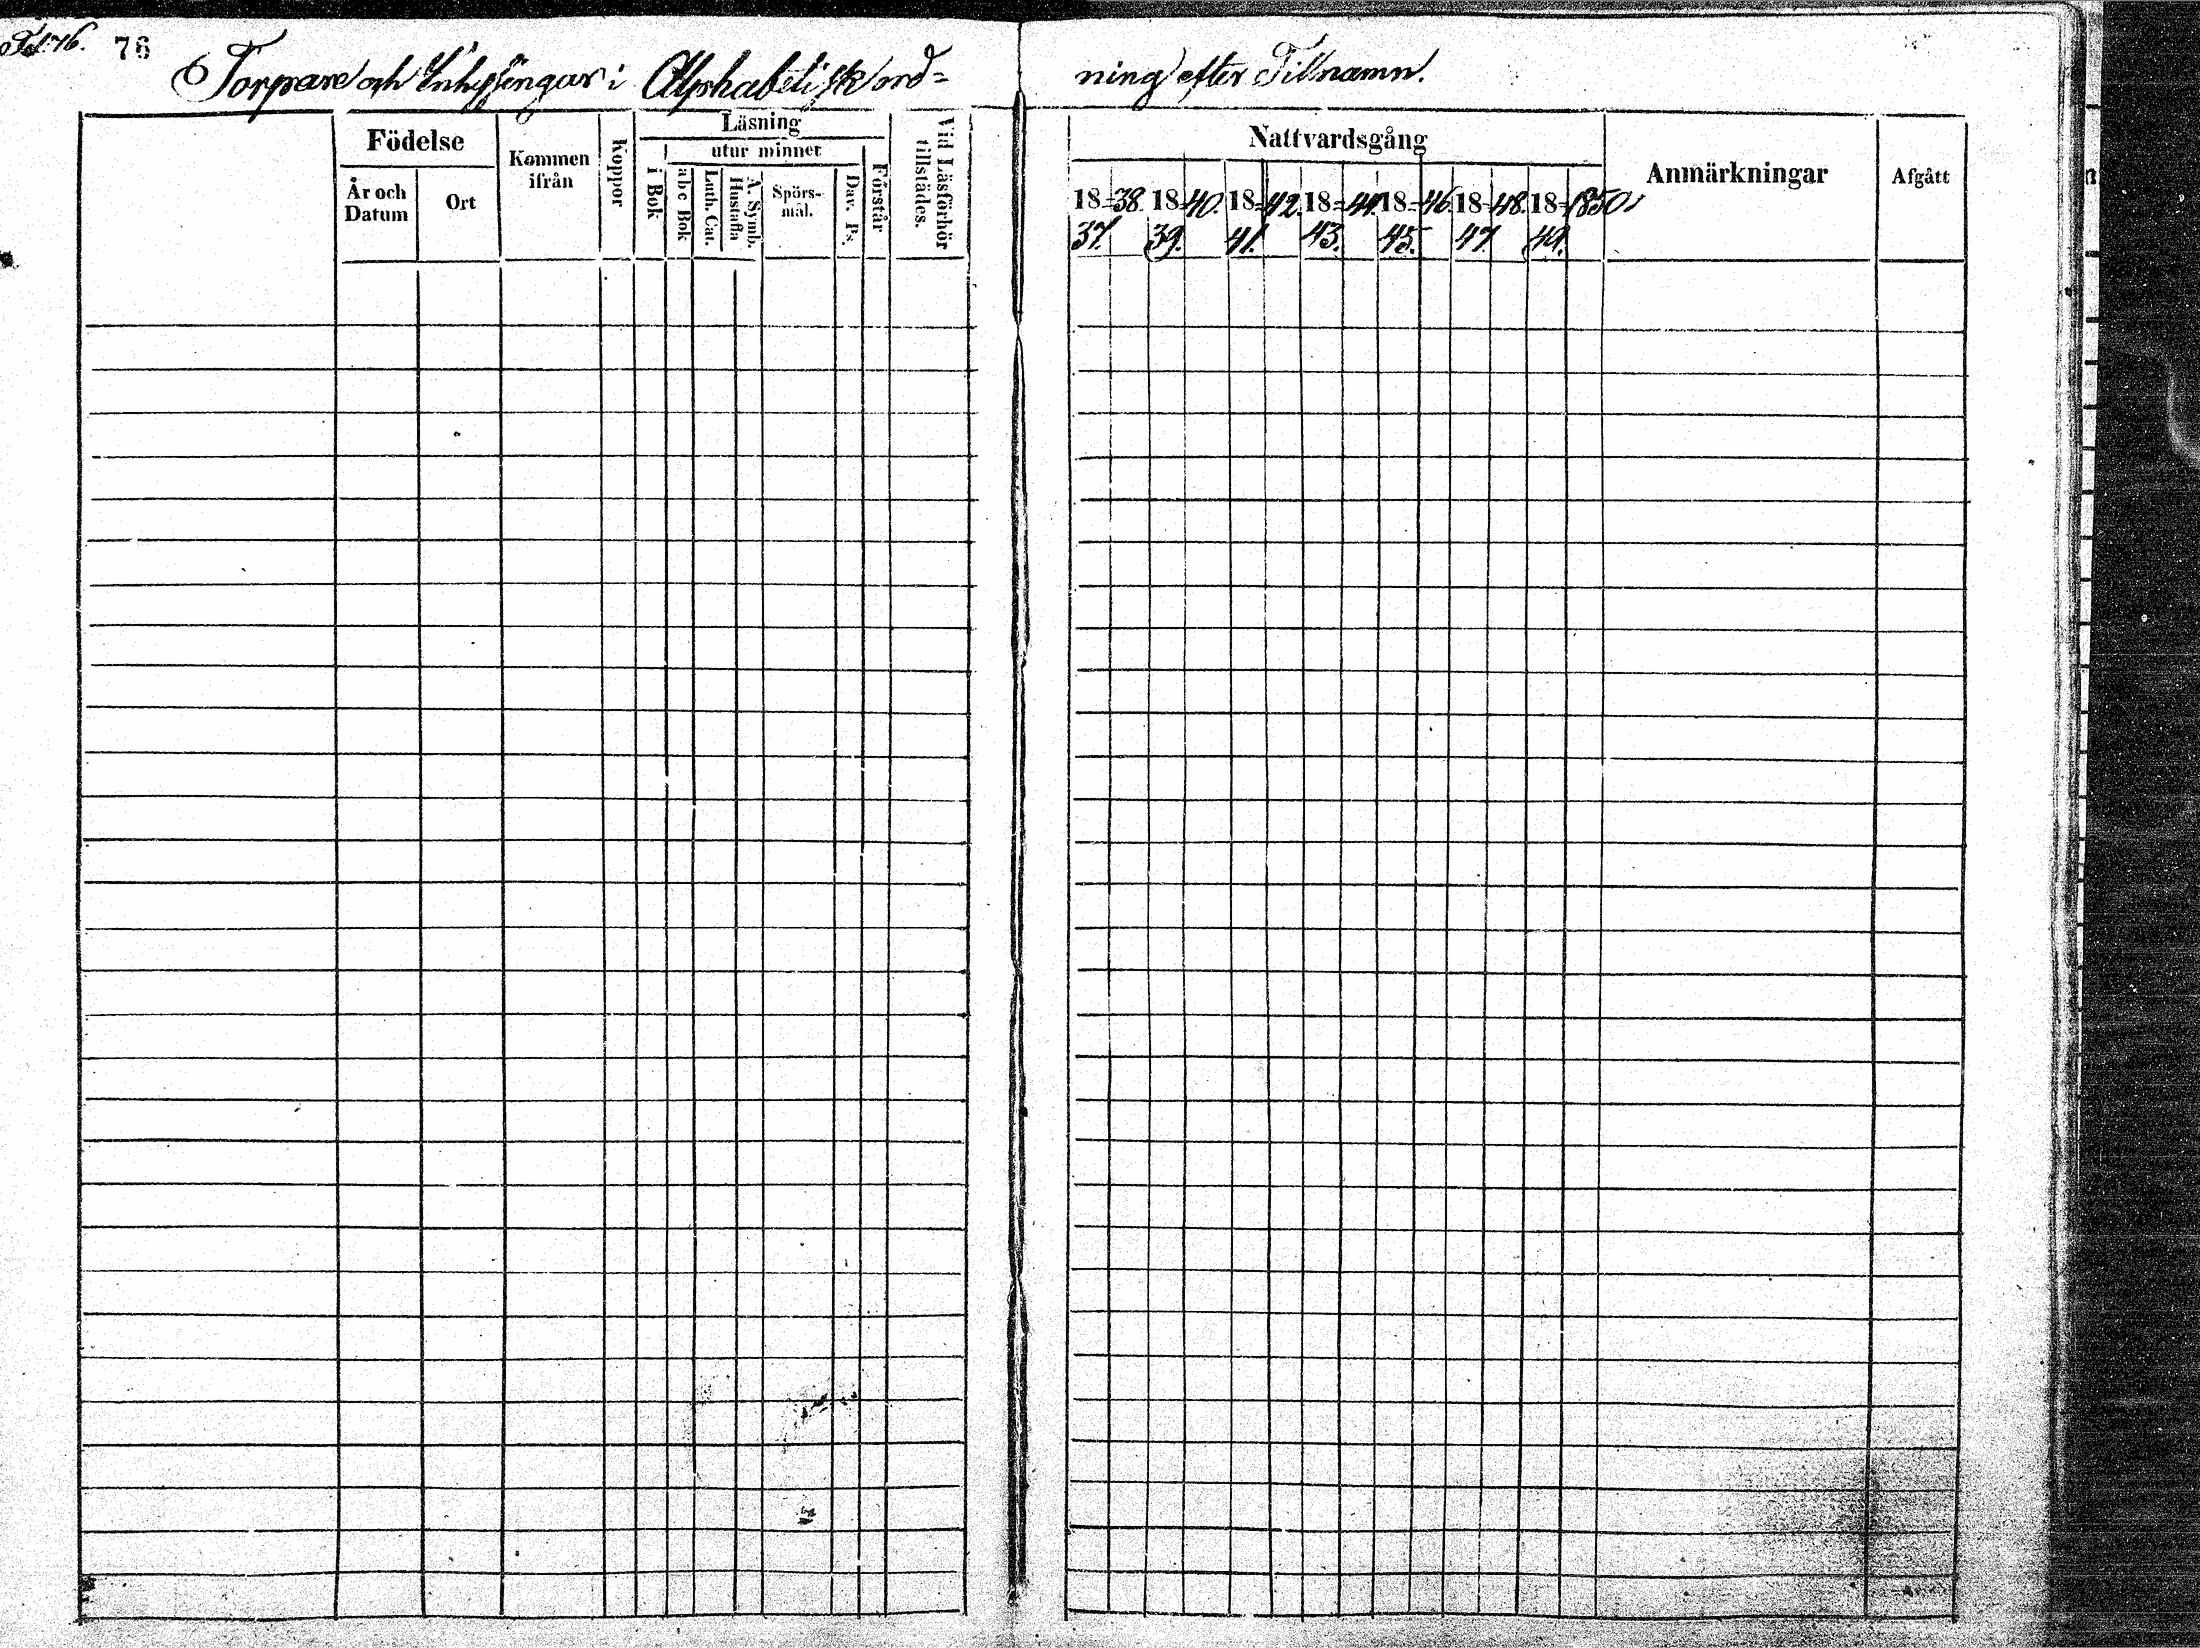 76
Torpare och Inhysingar i Alphabetisk ord=
ning efter Tillnamn.
Födelse
År och Datum
Ort
Kommen ifrån
Koppor
Läsning
i Bok
utur minnet
abc Bok
Luth. Cat.
A. Symb. Hustafla
Spörs-mål.
Dav. Ps.
Förstår
Vid Läsförhör tillstädes.
Nattvardsgång
18= 38. 18= 40. 18= 42. 18= 44. 18= 46. 18= 48. 18= 1850.
37. 39. 41. 43. 45. 47. 49.
Anmärkningar
Afgått